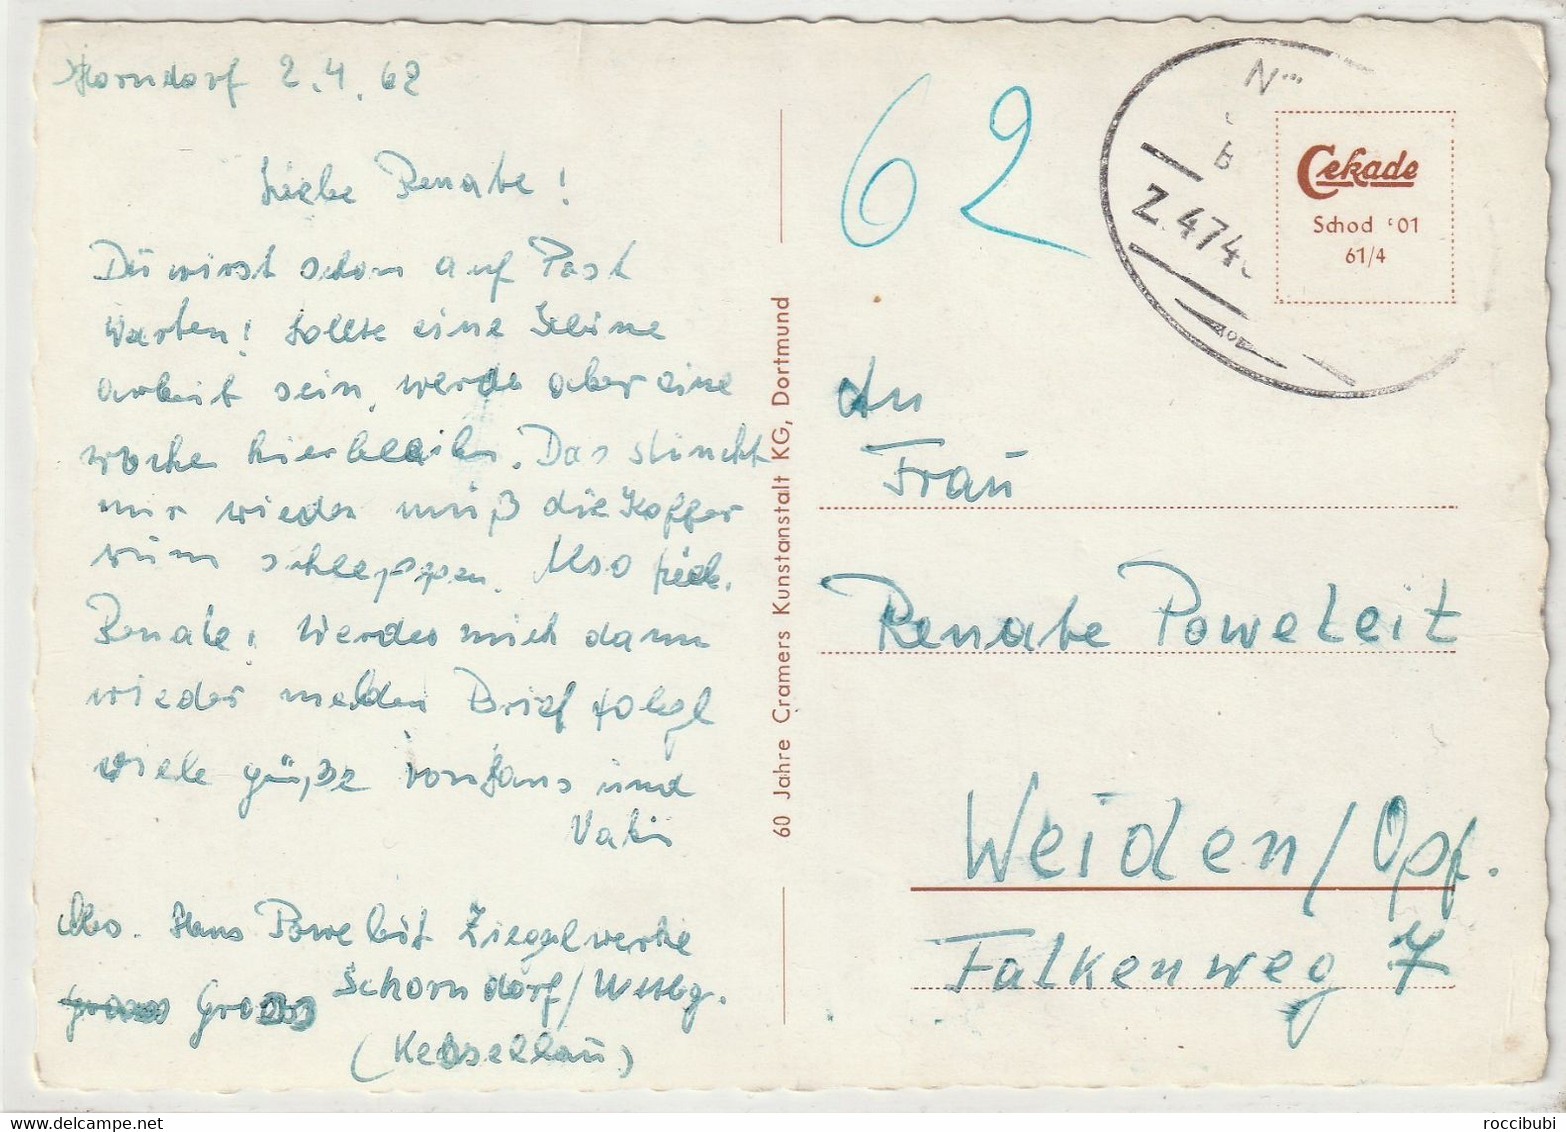 Schorndorf 2.4.62
Liebe Renate!
Du wirst schon auf Post
warten! Sollte eine kleine
arbeit sein, werde aber eine
woche hierbleiben. Das stinckt
mir wieder muß die Koffer
rum schleppen. Also
Renate, werde mich dann
wieder melden Brief folgt
viele grüße von Hans und
Also. Hans Poweleit Ziegelwerke
Schorndorf/Wttbg.
(Kesselbau)
60 Jahre Cramers Kunstanstalt KG, Dortmund
62
Z. 474
Cekade
Schod '01
61/4
An
Frau
Renate Poweleit
Weiden/Opf.
Falkenweg 7
roccibubi